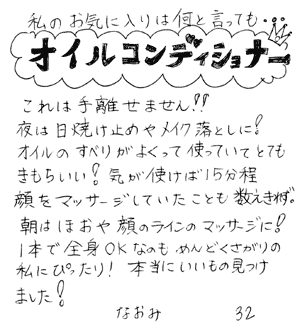 私のお気に入りは何と言っても・・・
オイルコンディショナー
これは手離せません!!
夜は日焼け止めやメイク落としに!
オイルのすべりがよくって使っていてとても
きもちいい! 気が使けば15分程
顔をマッサージしていたことも数えきれず。
朝はほおや顔のラインのマッサージに!
1本で全身OKなのもめんどくさがりの
私にぴったり! 本当にいいもの見つけ
ました!
なおみ 32